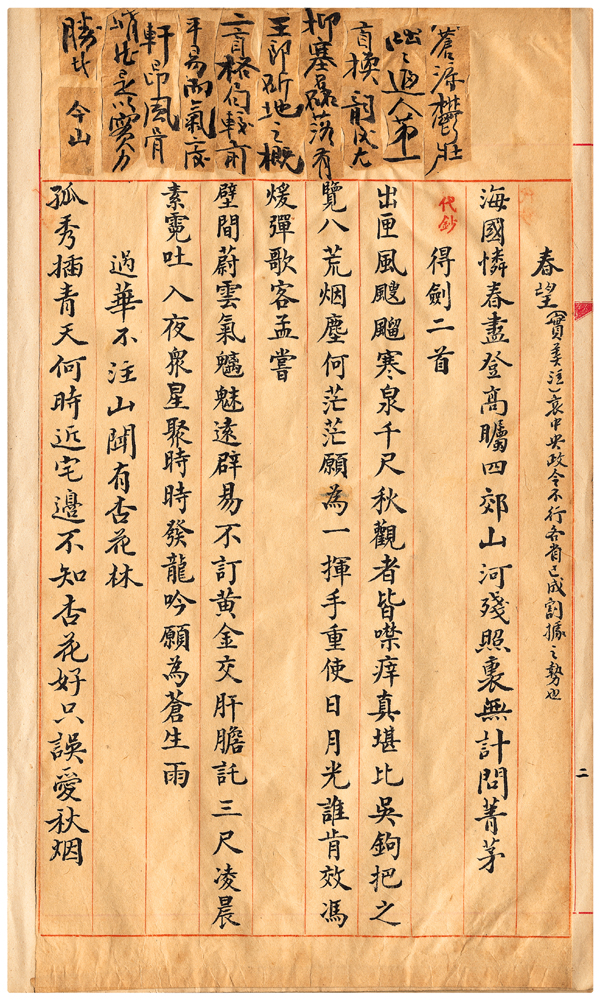 蒼渾鬱壯
咄咄逼人第一
首換韻
抑塞磊落有
王郎斫地之概
二首格局較前
平易而氣度
軒昂風骨
峭壯是以實力
勝也 今山
春望（注）哀中央政令不行各省已成割據之勢也
海國憐春盡登高矚四郊山河殘照裏無計問菁茅
代鈔
得劍二首
出匣風颼飀寒泉千尺秋觀者皆噤痒真堪比吳鉤把之
覽八荒烟塵何茫茫願為一揮手重使日月光誰肯效馮
煖彈歌客孟嘗
壁間蔚雲氣魑魅遠辟易不訂黃金交肝膽託三尺凌晨
素霓吐入夜眾星聚時時發龍吟願為蒼生雨
過華不注山聞有杏花林
孤秀插青天何時近宅邊不知杏花好只誤愛秋烟
二